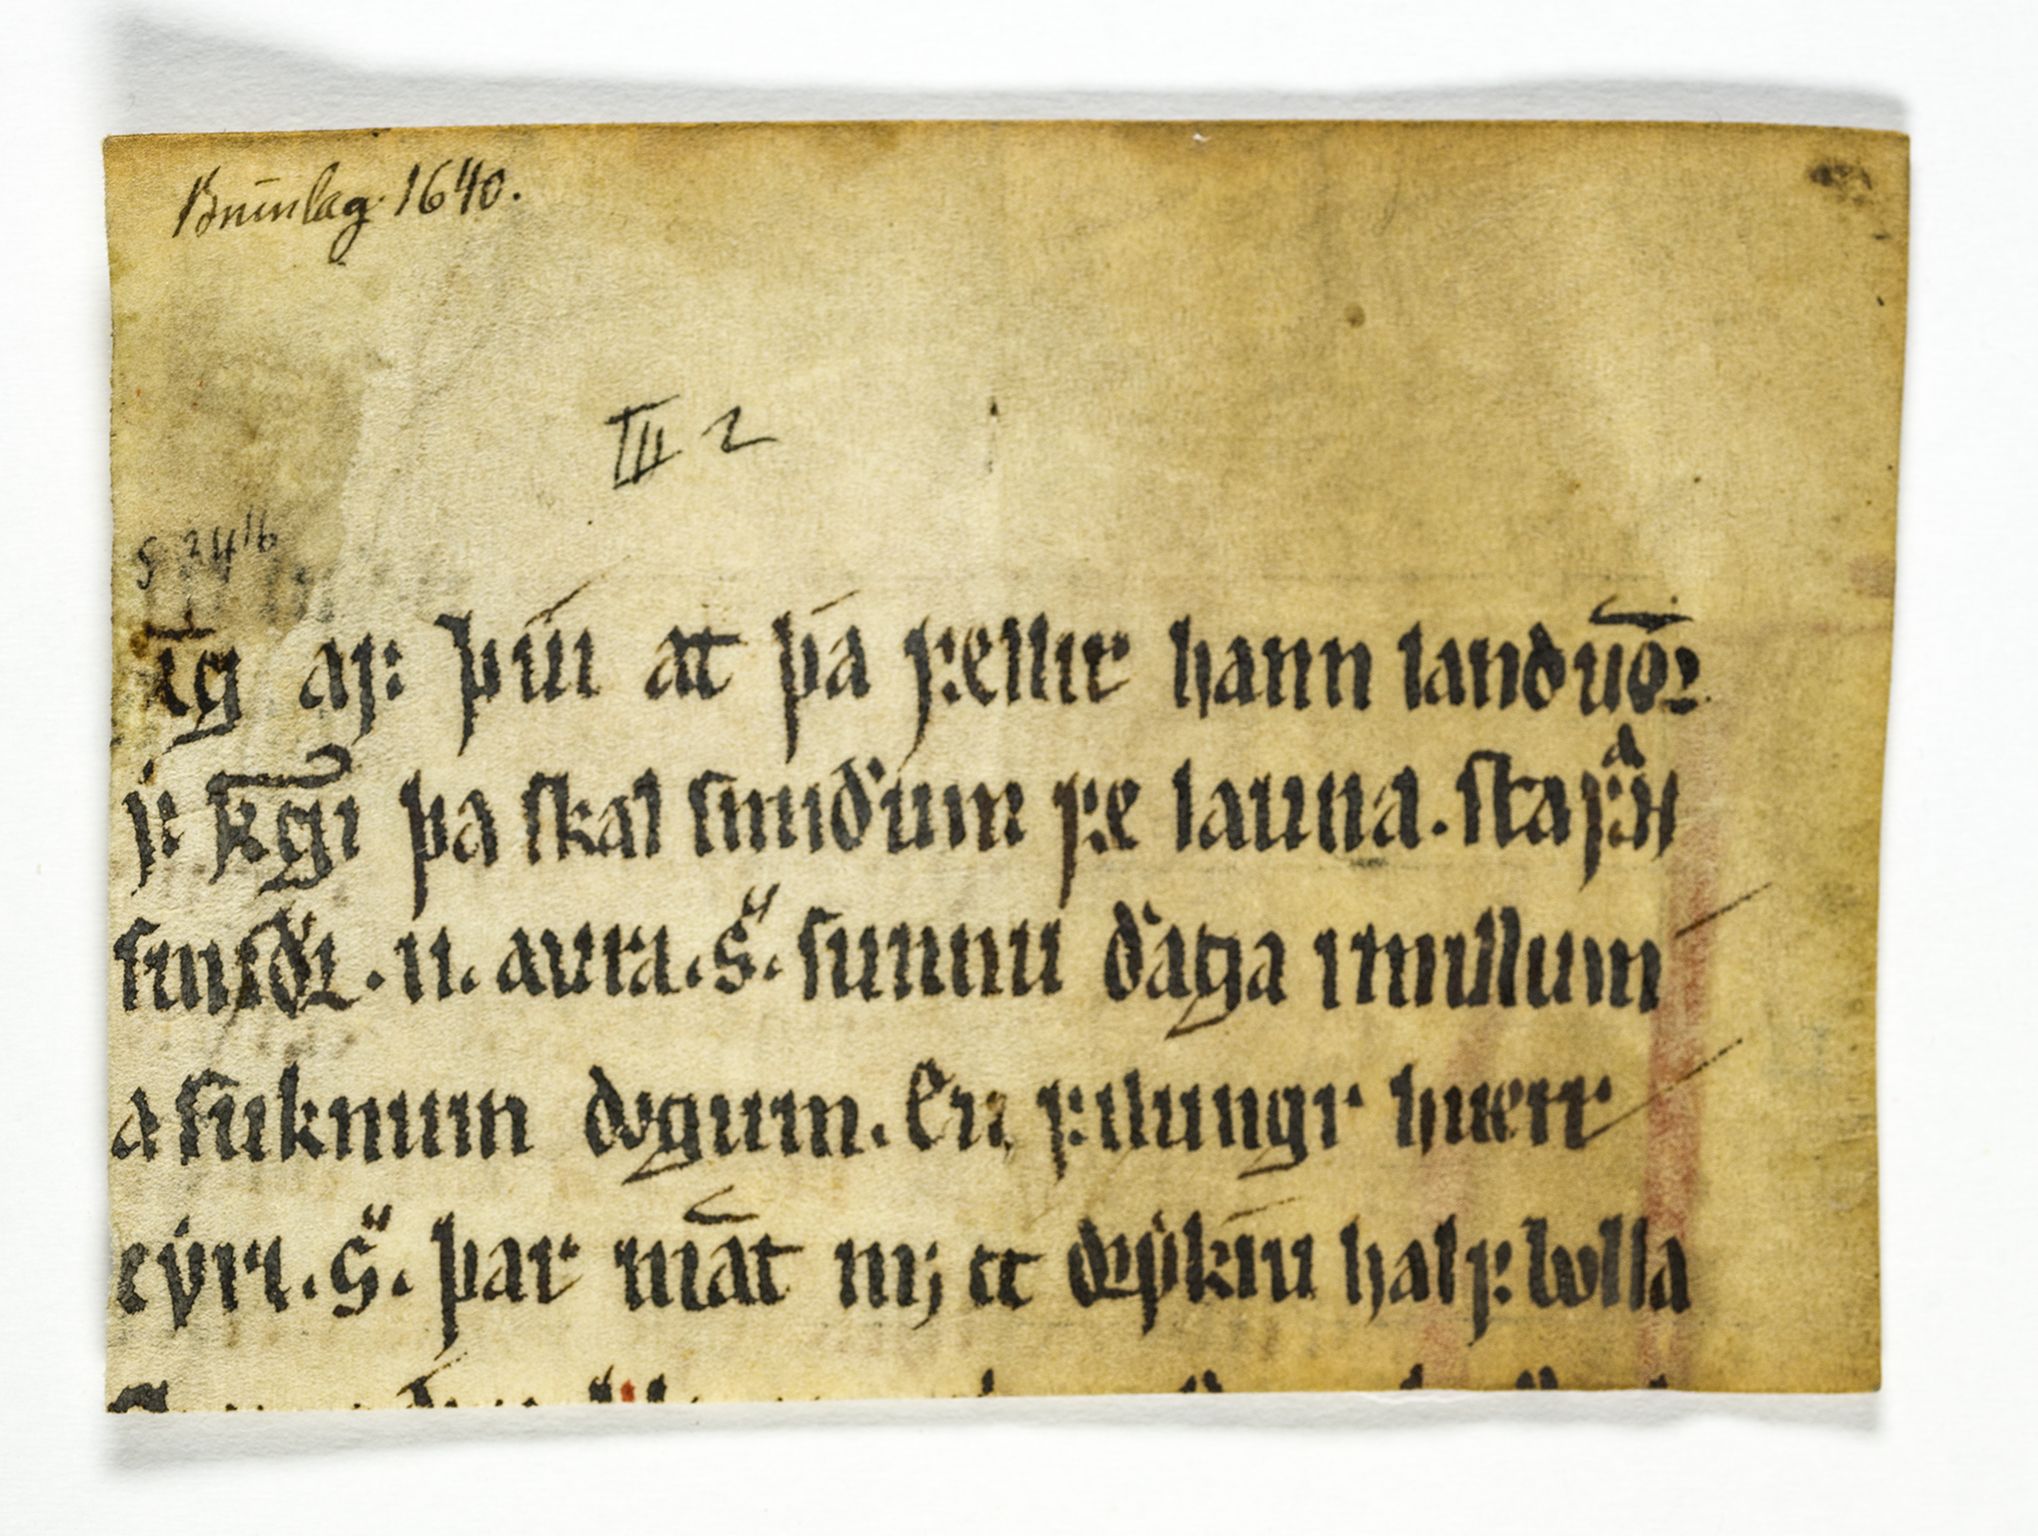 Brunlag. 1640.
III 2
S 24 16
kg̅ aꝼ þui at þa ꝼellir hann landuoꝛ
ꝼ kg̅i þa skal smidum ꝼe launa. staꝼn
smidꝛ. ii. aura. s̋. sunnu daga imillum
a suknum dogum. En ꝼilungr huerr
eyri. s̋. þar mat mꝫ et dꝛykiu halꝼ bolla